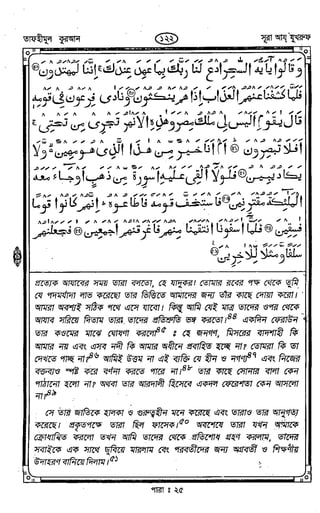 তাফহীমুল কুরআন ১২২ সূরা আয্ যুখরুফ
وَقَالُوا يٰٓاَيُّهَ السّٰحِرُ ادْعُ لَنَا رَبَّكَ بِمَا عَهِدَ عِنْدَكَ ۚ اِنَّنَا لَمُهْتَدُوْنَ ﴿٤٩﴾
فَلَمَّا كَشَفْنَا عَنْهُمُ الْعَذَابَ اِذَا هُمْ يَنْكُثُوْنَ ﴿٥٠﴾ وَنَادٰى فِرْعَوْنُ فِيْ قَوْمِهٖ
قَالَ يٰقَوْمِ اَلَيْسَ لِيْ مُلْكُ مِصْرَ وَهٰذِهِ الْاَنْهٰرُ تَجْرِيْ مِنْ تَحْتِيْ ۚ
اَفَلَا تُبْصِرُوْنَ ﴿٥١﴾ اَمْ اَنَا خَيْرٌ مِّنْ هٰذَا الَّذِيْ هُوَ مَهِيْنٌ ۙ وَّلَا
يَكَادُ يُبِيْنُ ﴿٥٢﴾ فَلَوْلَآ اُلْقِيَ عَلَيْهِ اَسْوِرَةٌ مِّنْ ذَهَبٍ اَوْ جَآءَ مَعَهُ
الْمَلٰٓئِكَةُ مُقْتَرِنِيْنَ ﴿٥٣﴾ فَاسْتَخَفَّ قَوْمَهٗ فَاَطَاعُوْهُ ۚ اِنَّهُمْ كَانُوْا قَوْمًا
فٰسِقِيْنَ ﴿٥٤﴾ فَلَمَّآ اٰسَفُوْنَا انْتَقَمْنَا مِنْهُمْ فَاَغْرَقْنٰهُمْ اَجْمَعِيْنَ ﴿٥٥﴾ فَجَعَلْنٰهُمْ
سَلَفًا وَّمَثَلًا لِّلْاٰخِرِيْنَ ﴿٥٦﴾
প্রত্যেক আযাবের সময় তারা বলতো, হে যাদুকর! তোমার রবের পক্ষ থেকে তুমি
যে পদমর্যাদা লাভ করেছো তার ভিত্তিতে আমাদের জন্য তাঁর কাছে দোয়া করো।
আমরা অবশ্যই সঠিক পথে এসে যাবো। কিন্তু আমি যেই মাত্র তাদের ওপর থেকে
আযাব সরিয়ে দিতাম তারা তাদের প্রতিশ্রুতি ভঙ্গ করতো।৪৪ একদিন ফেরাউন
তার কওমের মাঝে ঘোষণা করলো৪৫ ঃ হে জনগণ, মিসরের বাদশাহী কি
আমার নয় এবং এসব নদী কি আমার অধীনে প্রবাহিত হচ্ছে না? তোমরা কি তা
দেখতে পাচ্ছ না?৪৬ আমিই উত্তম না এই ব্যক্তি যে হীন ও নগণ্য৪৭ এবং নিজের
বক্তব্যও স্পষ্ট করে বর্ণনা করতে পারে না।৪৮ তার কাছে সোনার বালা কেন
পাঠানো হলো না? অথবা তার আরদালী হিসেবে একদল ফেরেশতা কেন আসলো
না।৪৯
সে তার জাতিকে হালকা ও গুরুত্বহীন মনে করেছে এবং তারাও তার আনুগত্য
করেছে। প্রকৃতপক্ষে তারা ছিল ফাসেক।৫০ অবশেষে তারা যখন আমাকে
ক্রোধান্বিত করলো তখন আমি তাদের থেকে প্রতিশোধ গ্রহণ করলাম, তাদের
সবাইকে এক সাথে ডুবিয়ে মারলাম এবং পরবর্তীদের জন্য অগ্রবর্তী ও শিক্ষণীয়
উদাহরণ বানিয়ে দিলাম।৫১
পারা ঃ ২৫